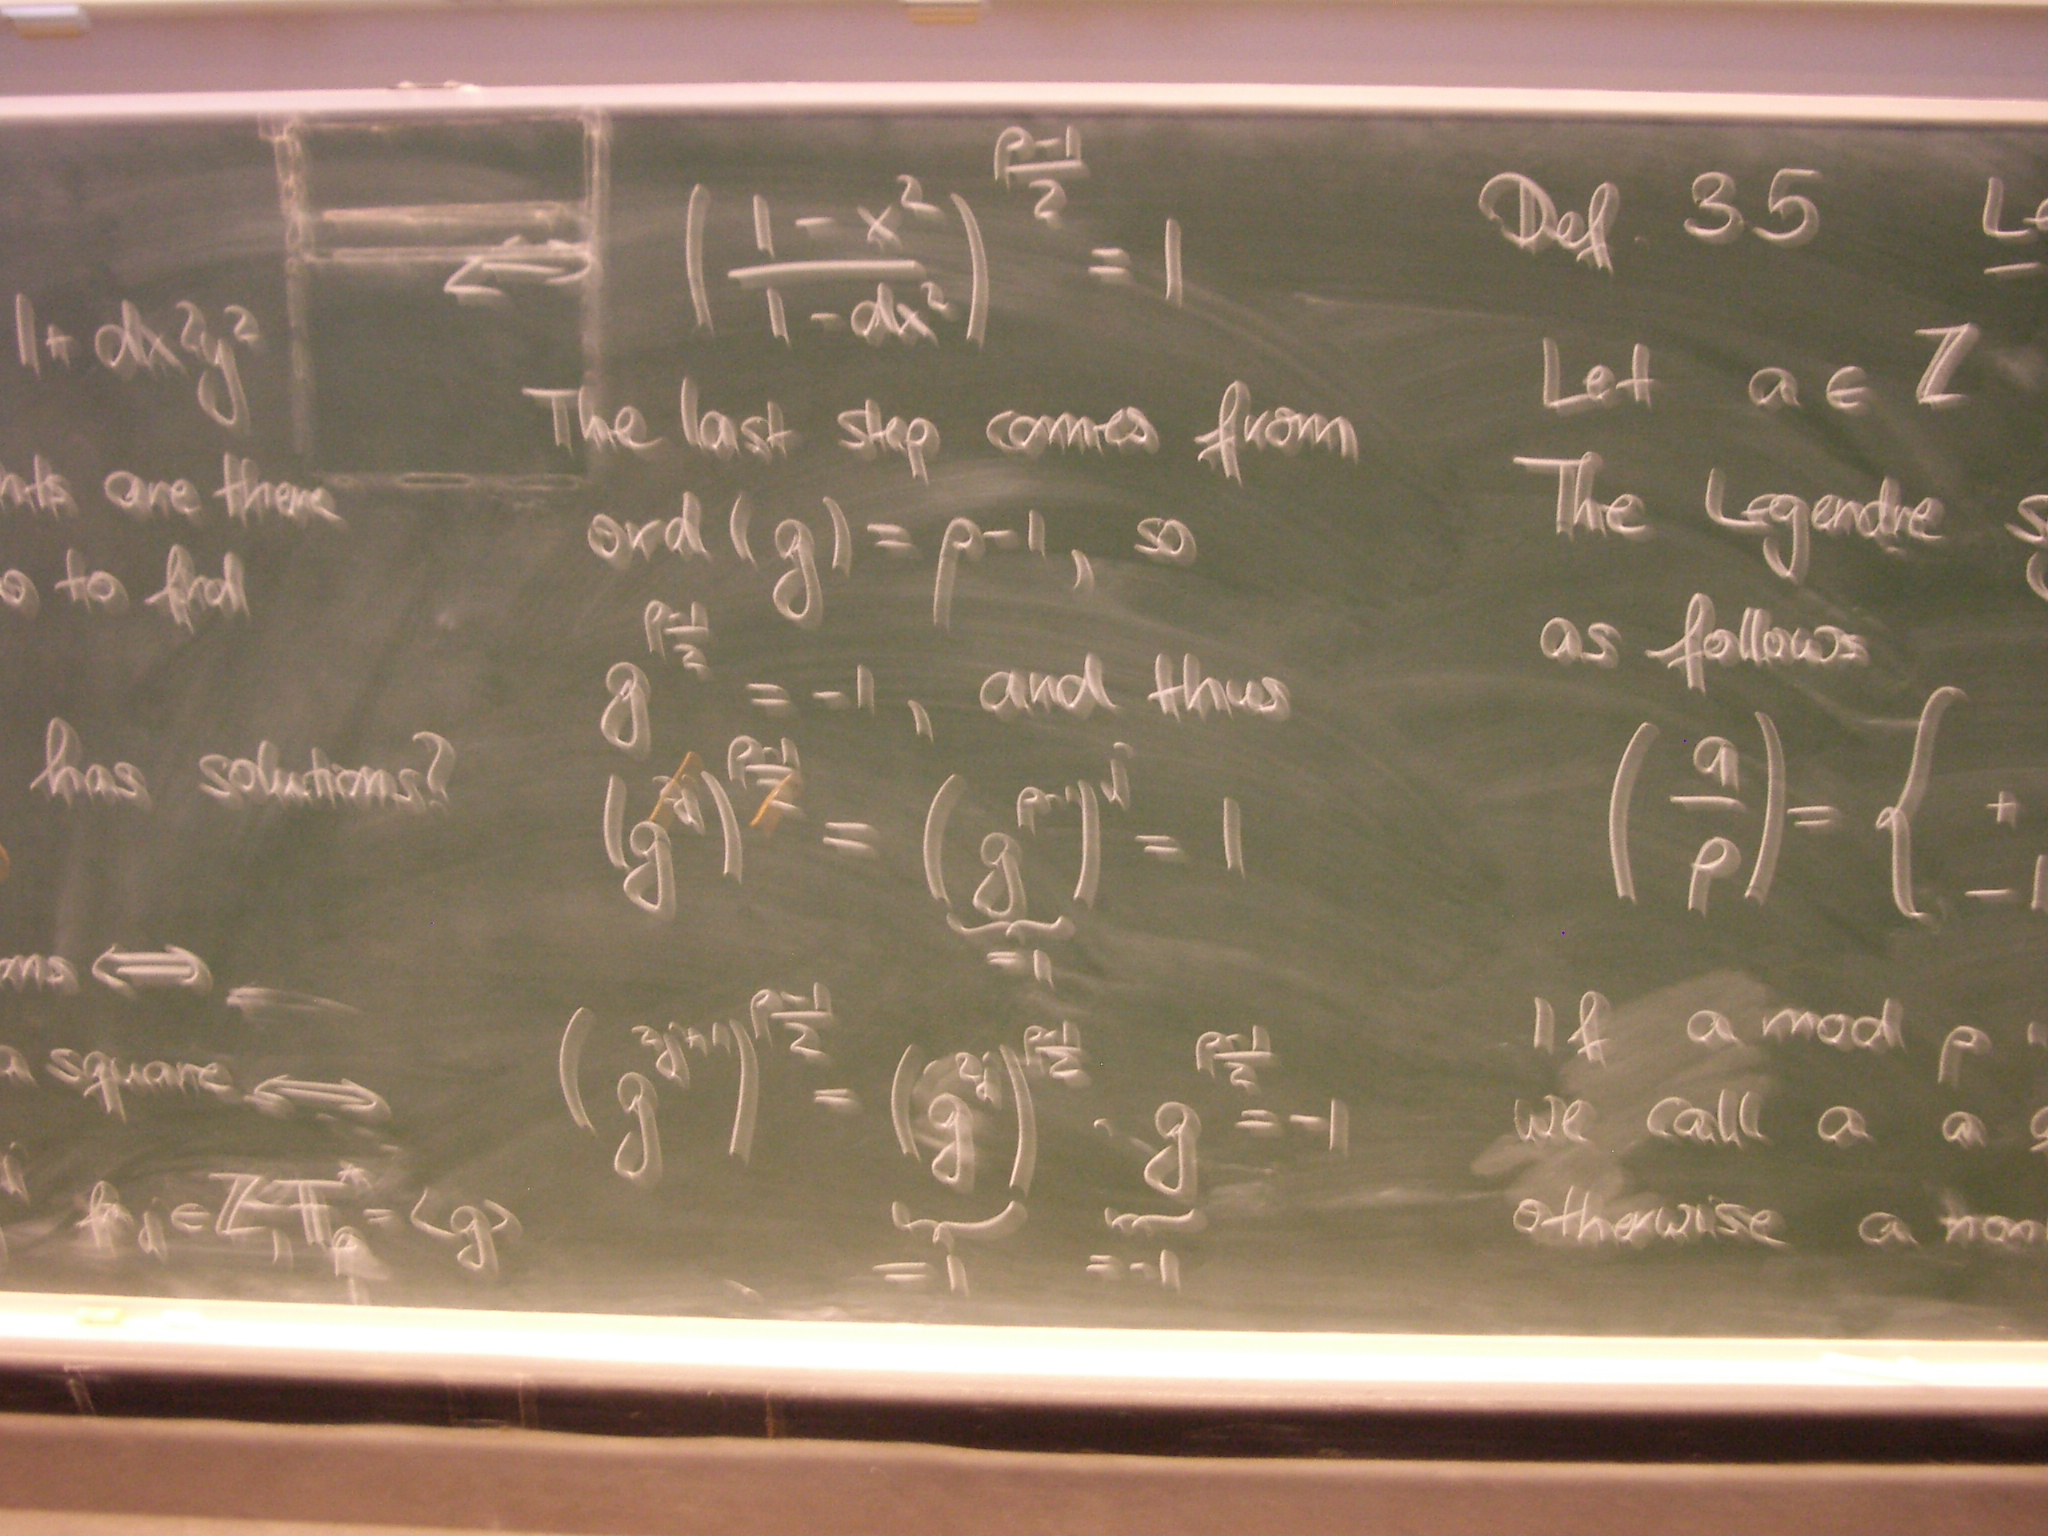 1+ dx²y²
are there
to find
has solutions?
⟺
a square ⟺
j ∈ Z, F_p^* = <g>
((1 - x²)/(1 - dx²))^((p-1)/2) = 1
The last step comes from
ord (g) = p-1, so
g^((p-1)/2) = -1, and thus
(g^(2j))^((p-1)/2) = (g^(p-1))^j = 1
=1
(g^(2j+1))^((p-1)/2) = (g^(2j))^((p-1)/2) · g^((p-1)/2) = -1
=1 =-1
Def 3.5
Let a ∈ Z
The Legendre
as follows
(a/p) = { +
-1
If a mod p
we call a a
otherwise a